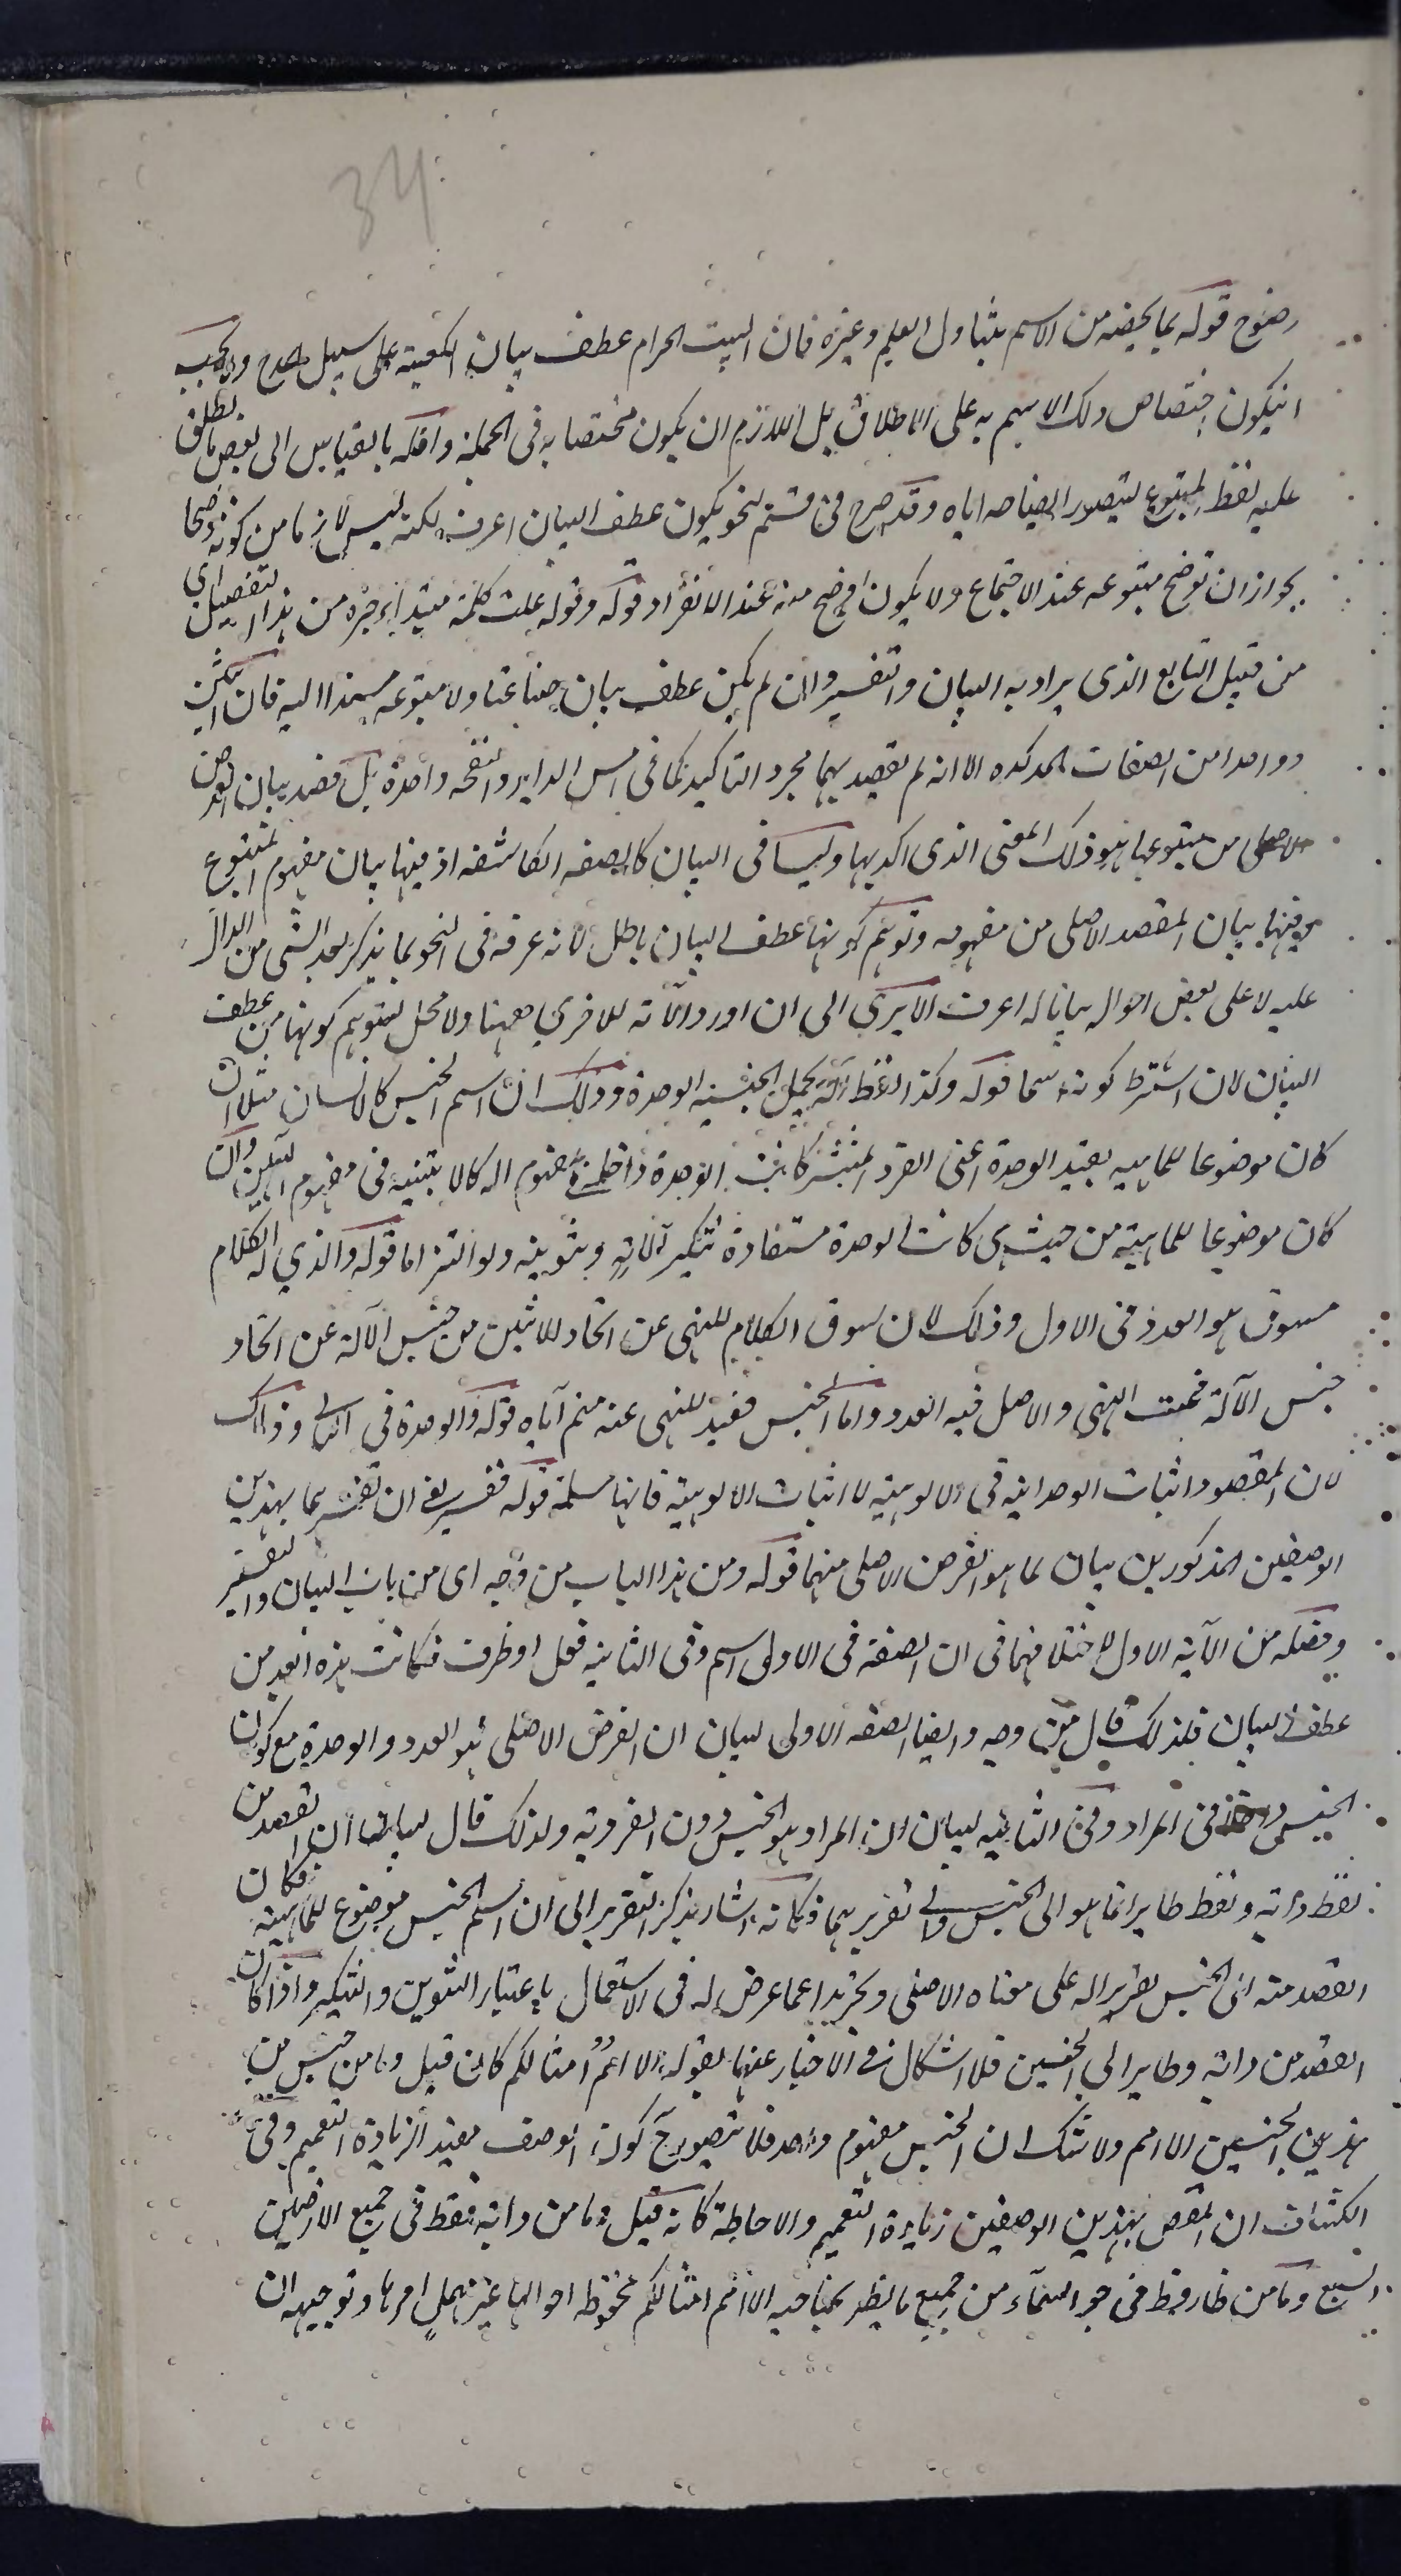 34
رضوح قوله بما يخصه من الاسم يتناول العلم وغيره فان البيت الحرام عطف بيان الكعبة على سبيل المدح ولا يجب
ان يكون اختصاص ذلك الاسم به على الاطلاق بل اللازم ان يكون مختصا به في الجملة واقله بالقياس الى بعض ما يطلق
عليه لفظ المتبوع ليتصور ايضاحه اياه وقد صرح في قسم النحو بكون عطف البيان اعرف لكنه ليس لازما من كونه موضحا
لجواز ان توضح متبوعه عند الاجتماع ولا يكون اوضح منه عند الانفراد قوله وقوله علت كلمته مبتدأ خبره من هذا التفصيل اي
من قبيل التابع الذي يراد به البيان والتفسير وان لم يكن عطف بيان صناعتا ولا متبوعه مسندا اليه فان اثنين
وواحدا من الصفات المؤكده الا انه لم يقصد بهما مجرد التاكيد كما في امس الدابر والنفخة واحدة بل قصد بيان الغرض
الاصلى من متبوعها هو ذلك المعنى الذي اكد بها وليسا في البيان كالصفه الكاشفه اذ فيها بيان مفهوم المتبوع
وفيهما بيان المقصد الاصلى من مفهومه وتوهم كونها عطف البيان باطل لانه عرفه في النحو بما يذكر بعد الشى من الدال
عليه لا على بعض احواله بيانا له اعرف الا يرى الى ان اورد الآية للاخرى ههنا ولا محل لتوهم كونها من عطف
البيان لان اشترط كونه اسما قوله وكذا لفظ اله يحمل الجنسية الوحدة وذلك ان اسم الجنس كالانسان مثلا ان
كان موضوعا للماهيه بقيد الوحدة اعنى الفرد المنتشر كانت الوحدة داخلة في مفهوم اله كالاثنينيه في مفهوم الهين وان
كان موضوعا للماهيته من حيث هى كانت الوحدة مستفادة تنكير آلاته وتنوينه ولو التزاما قوله والذي له الكلام
مسوق هو العدد في الاول وذلك لان سوق الكلام للنهى عن اتخاذ الاثنين من جنس الآلة عن اتخاذ
جنس الآلة فمحت النهى والاصل فيه العدد واما الجنس فقيد للنهى عنه منهم آياه قوله والوحدة في الثاني وذلك
لان المقصود اثبات الوحدانيه في الالوهيته لا اثبات الالوهيته فانها مسلمة قوله ففسر يعني ان تفسيرهما بهذين
الوصفين المذكورين بيان لما هو الغرض الاصلى منهما قوله ومن هذا الباب من وجه اى من باب البيان والتفسير
وفصله من الآية الاول لاختلافهما في ان الصفة في الاولى اسم وفى الثانية فعل او ظرف فكانت هذه ابعد من
عطف البيان فلذلك قال من وجه وايضا الصفه الاولى لبيان ان الغرض الاصلى هو العدد والوحدة مع كون
الجنس داخلا في المراد وفى الثانيه لبيان ان المراد هو الجنس دون الفردية ولذلك قال لبيان ان القصد من
لفظ دابة ولفظ طاير انما هو الى الجنس والى تقريرهما وكانه اشار بذكر التقرير الى ان اسم الجنس موضوع للماهيته فكان
القصد منه الى الجنس تقرير اله على معناه الاصلى وتجريدا عما عرض له في الاستعمال باعتبار التنوين والتنكير واذا كان
القصد من دابة وطاير الى الجنسين فلا اشكال في الاخبار عنهما بقوله الا امم امثالكم كانه قيل وما من جنس من
هذين الجنسين الا امم ولا شك ان الجنس مفهوم واحد فلا يتصور ح كون الوصف مفيدا لزيادة التعميم وفى
الكشاف ان المقصود بهذين الوصفين زيادة التعميم والاحاطة كانه قيل وما من دابة فقط في جميع الارضين
السبع وما من طاير قط في جو السماء من جميع ما يطير بجناحيه الا امم امثالكم محفوظة احوالها غير مهمل امرها وتوجيهه ان